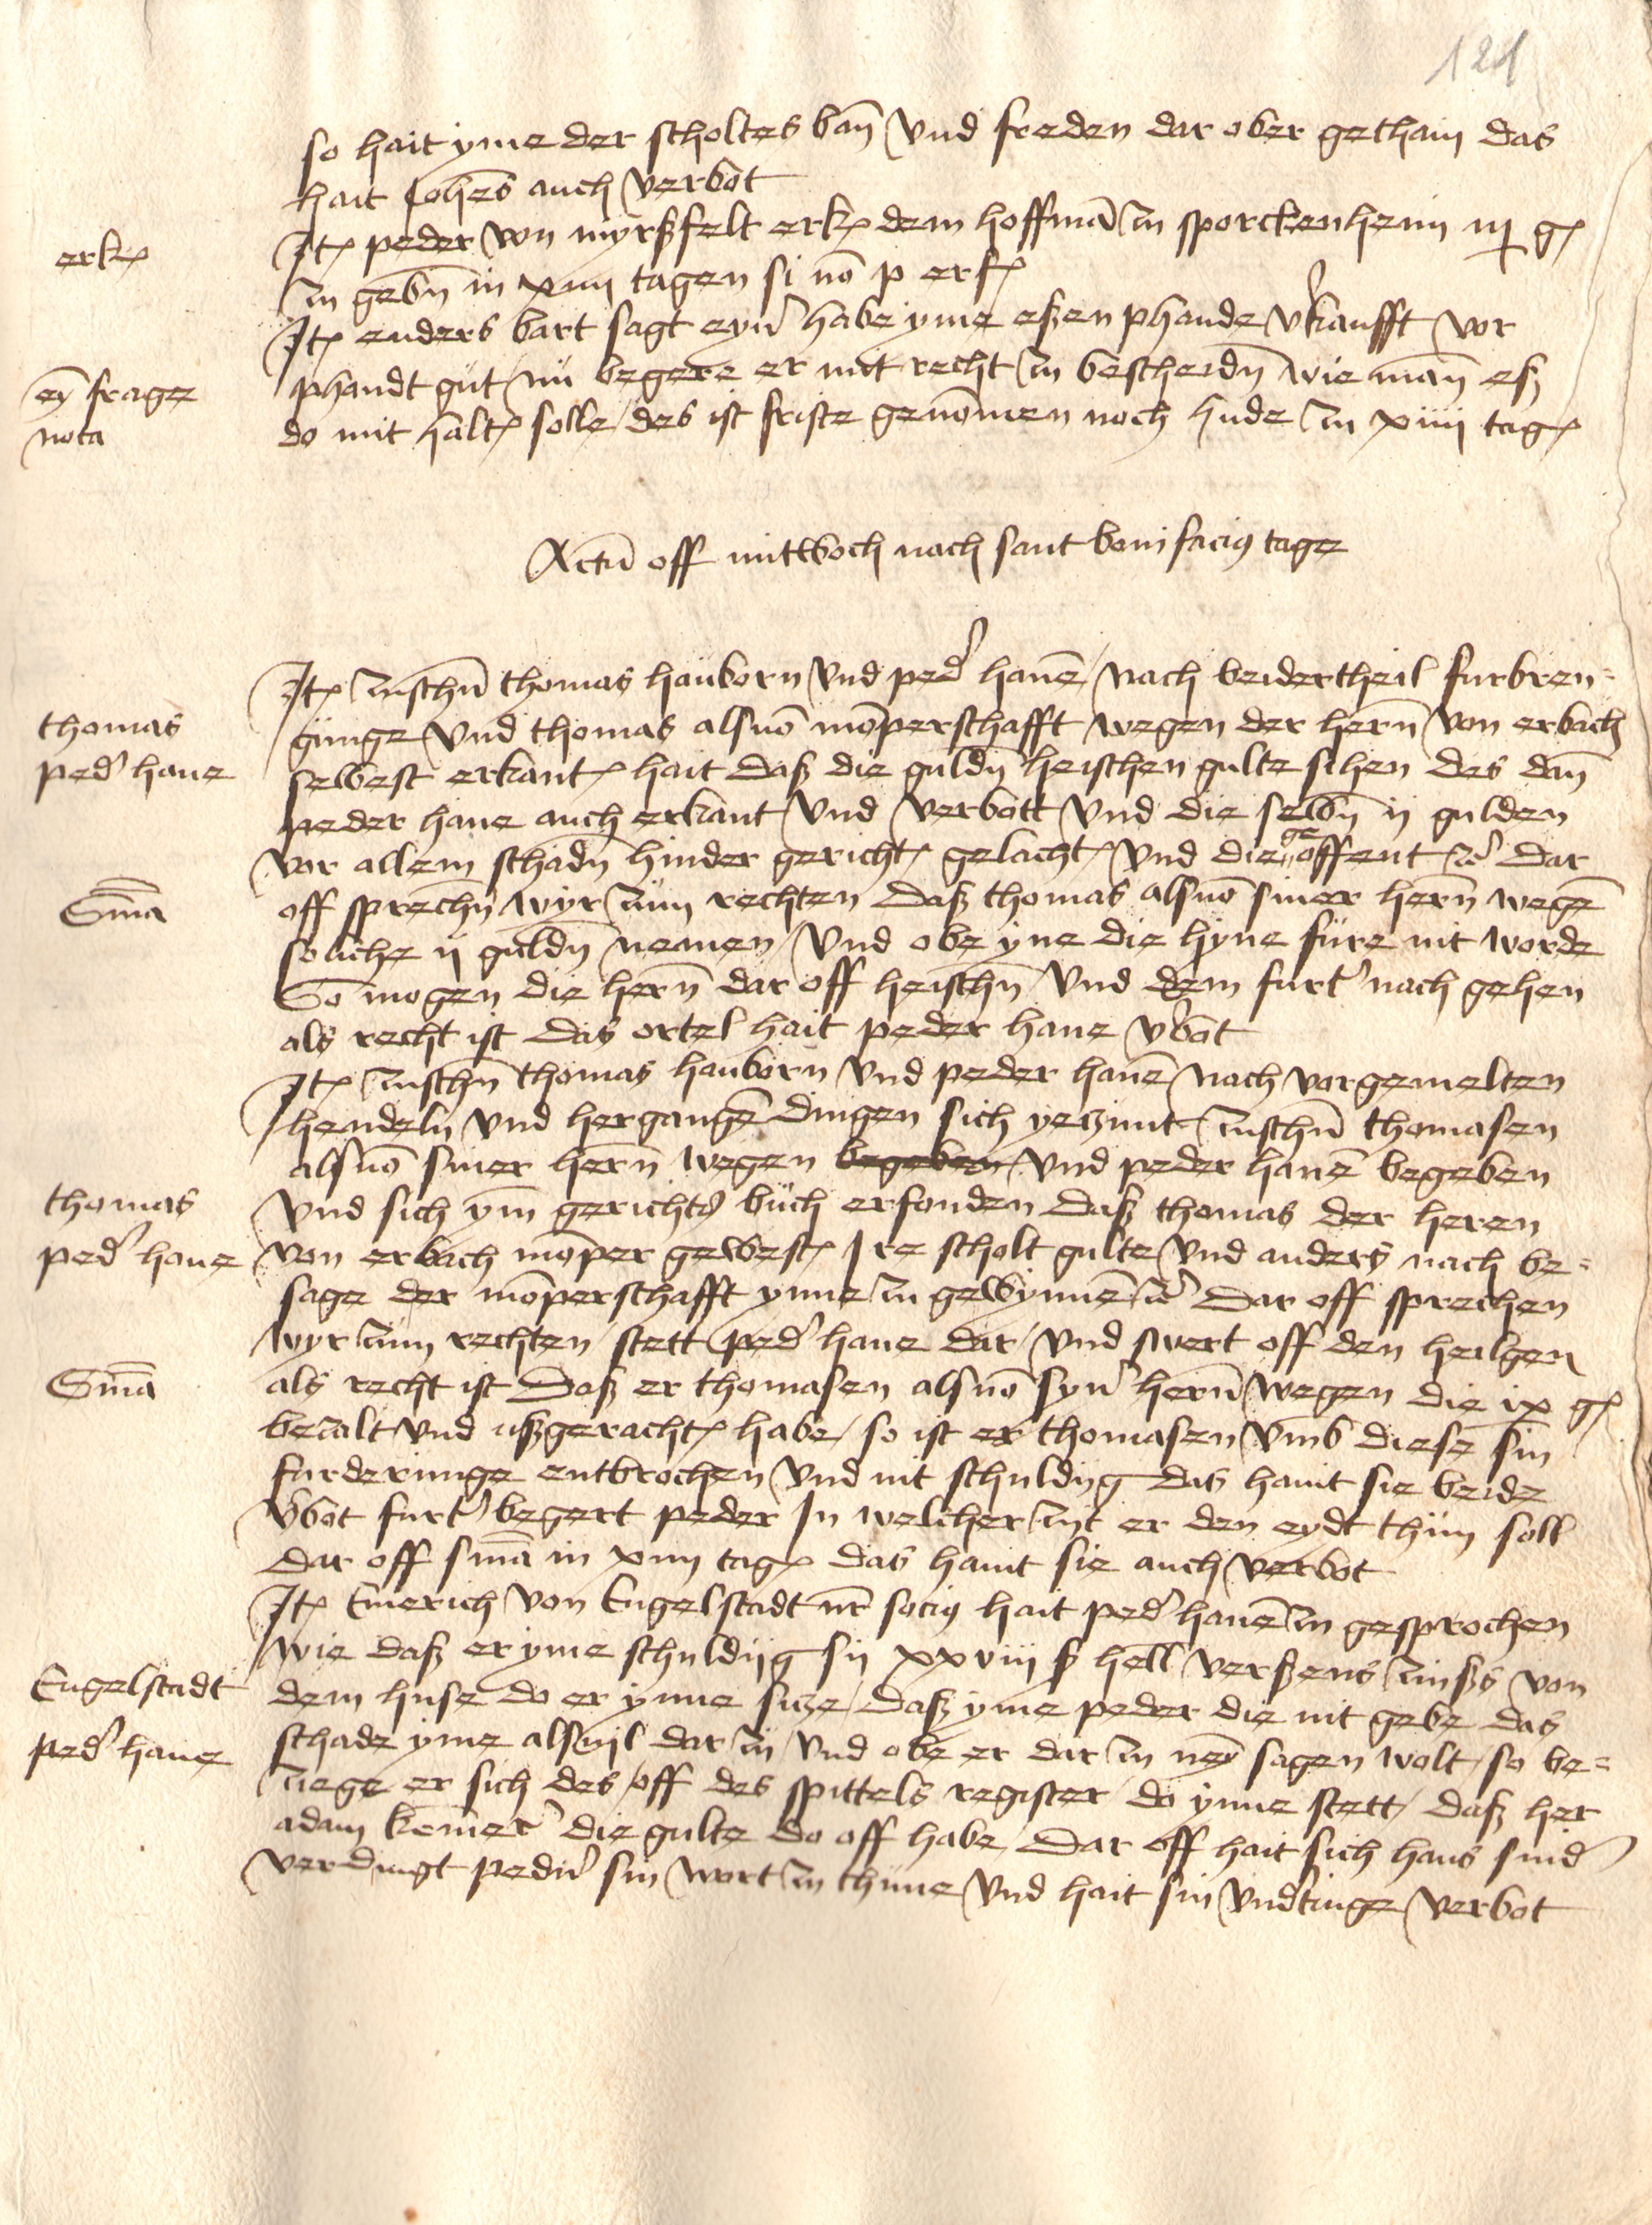 121
so hait yme der scholtes bañ vnd freden dar ober gethain das
hait Johes̄ auch verbot
erk
Itꝫ peder von myrßfelt erkꝫ dem hoffmā zu sporckenheim iij gꝫ
zu gebn̄ in xiiij tagen si nō p erfꝫ
Itꝫ enders bart sagt eynr̄ habe yme eßen phande v̓kaufft vor
ey̅ frage
phandt gut nu begere er mit recht zu bescheidn̄ wie man̄ eß
nota
do mit haltꝫ solle des ist friste genōmen noch hude zu xiiij tagꝫ
Actū off mitwoch nach sant bonifacius tage
Itꝫ zuschn̄ thomas hauborn vnd ped̓ hanē nach beidertheil furbren=
thomas
gunge vnd thomas als vō mōperschafft wegen der hern̄ von erbach
ped̓ hane
selbest erkantꝫ hait daß die guldn̄ heischen gulte sihen des dan̄
peder hane auch erkant vnd verbott vnd die selbn̄ ij gulden
vor allem schadn̄ hinder gerichtꝫ gelachtꝫ vnd die geoffent zc̓ dar
Sm̄a
off sprechn̄ wyr zum rechten daß thomas als vō siner hern̄ wegē
soliche ij guldn̄ nemen vnd obe yne die hyne fure nit worde
So mogen die hern̄ dar off heischn̄ vnd dem furt̓ nach gehen
als recht ist das ortel hait peder hane v̓bot
Itꝫ zuschn̄ thomas hauborn vnd peder hanē nach vorgemelten
hendeln vnd hergangē dingen sich yeczunt zuschn̄ thomasen
als vō siner hern̄ wegen begeben vnd peder hanē begeben
thomas
vnd sich ym̄ gerichts buch erfonden daß thomas der heren
ped̓ hane
von erbach mōper gewestꝫ Ire scholt gulte vnd anders nach be=
sage der mōperschafft ynne zu gewynnē zc̓ Dar off sprechen
wyr zum rechten stett ped̓ hane dar vnd swert off den heilgen
Sm̄a
als recht ist Daß er thomasen als vō synr̄ hern̄ wegen die ix gꝫ
bezalt vnd ußgerachtꝫ habe so ist er thomasen vmb diese sin
furderunge entbrochen vnd nit schuldiig das hant sie beide
v̓bot furt̓ begert peder In welicher zijt er den eydt thun soll
Dar off sm̄a in xiiij tagꝫ das hant sie auch verbot
Itꝫ Emerich von Engelstadt nr̄ socius hait ped̓ hanē zu gesprochen
wie daß er yme schuldiig sij xxviij ß hell verseßens zinßs von
Engelstadt
dem huse do er ynne sicze daß yme peder die nit gebe das
ped̓ hane
schade yme als vijl dar zu vnd obe er dar zu neyn sagen wolt so be=
ziege er sich des off des spittels register do ynne stett daß her
adam kemer̓ die gulte do off habe Dar off hait sich hans snid̓
verdingt pedn̓ sin wort zu thune vnd hait sin vndtinge verbot